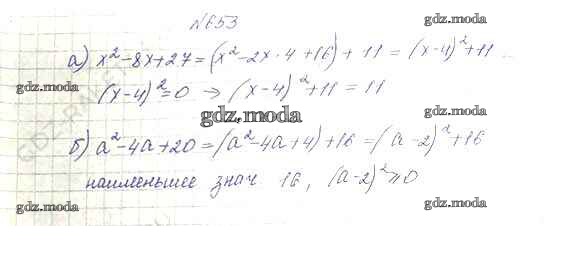 №653
gdz.moda
а) x² - 8x + 27 = (x² - 2x · 4 + 16) + 11 = (x - 4)² + 11
gdz.moda gdz.moda
(x - 4)² = 0 → (x - 4)² + 11 = 11
gdz.moda
б) a² - 4a + 20 = (a² - 4a + 4) + 16 = (a - 2)² + 16
наименьшее знач. 16, (a - 2)² ⩾ 0
gdz.moda gdz.moda